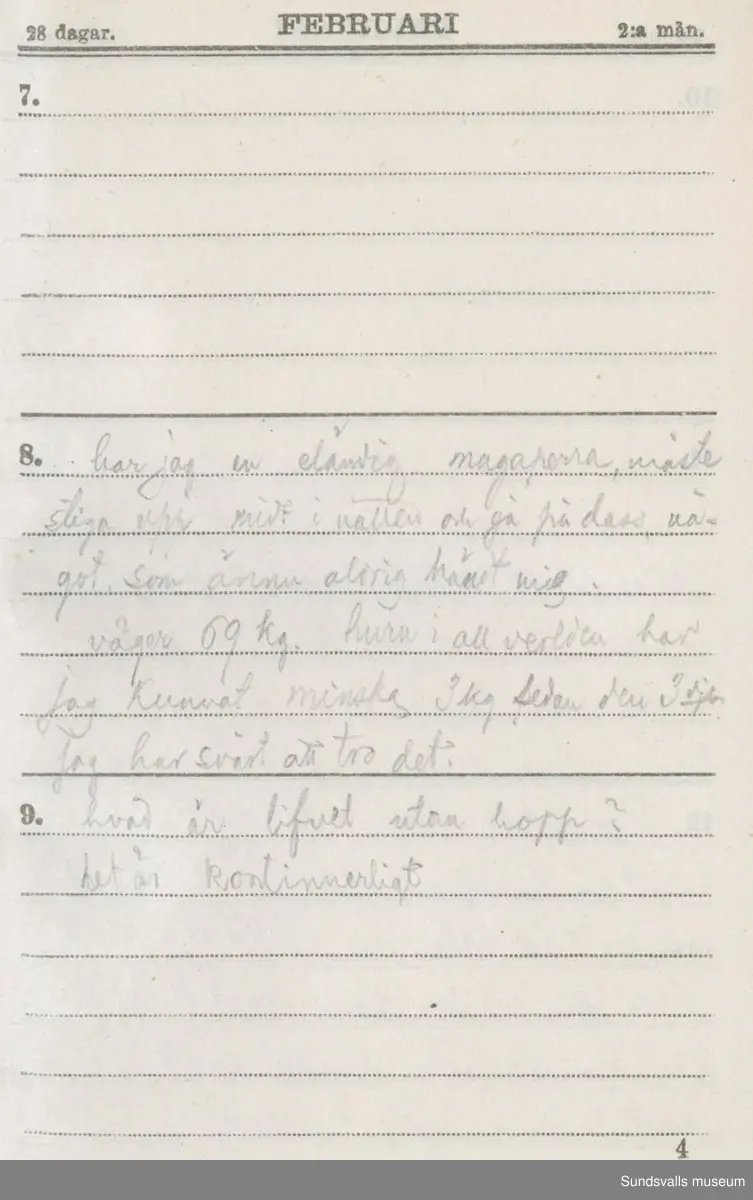 28 dagar. FEBRUARI 2:a mån.
7.
8. har jag en eländig magaperra, måste
stiga upp midt i natten och gå på dass, nå-
got som ännu aldrig händt mig.
väger 69 kg. huru i all verlden har
jag kunnat minska 3 kg sedan den 3
jag har svårt att tro det.
9. hvad är lifvet utan hopp?
det är kontinuerligt
4
Sundsvalls museum